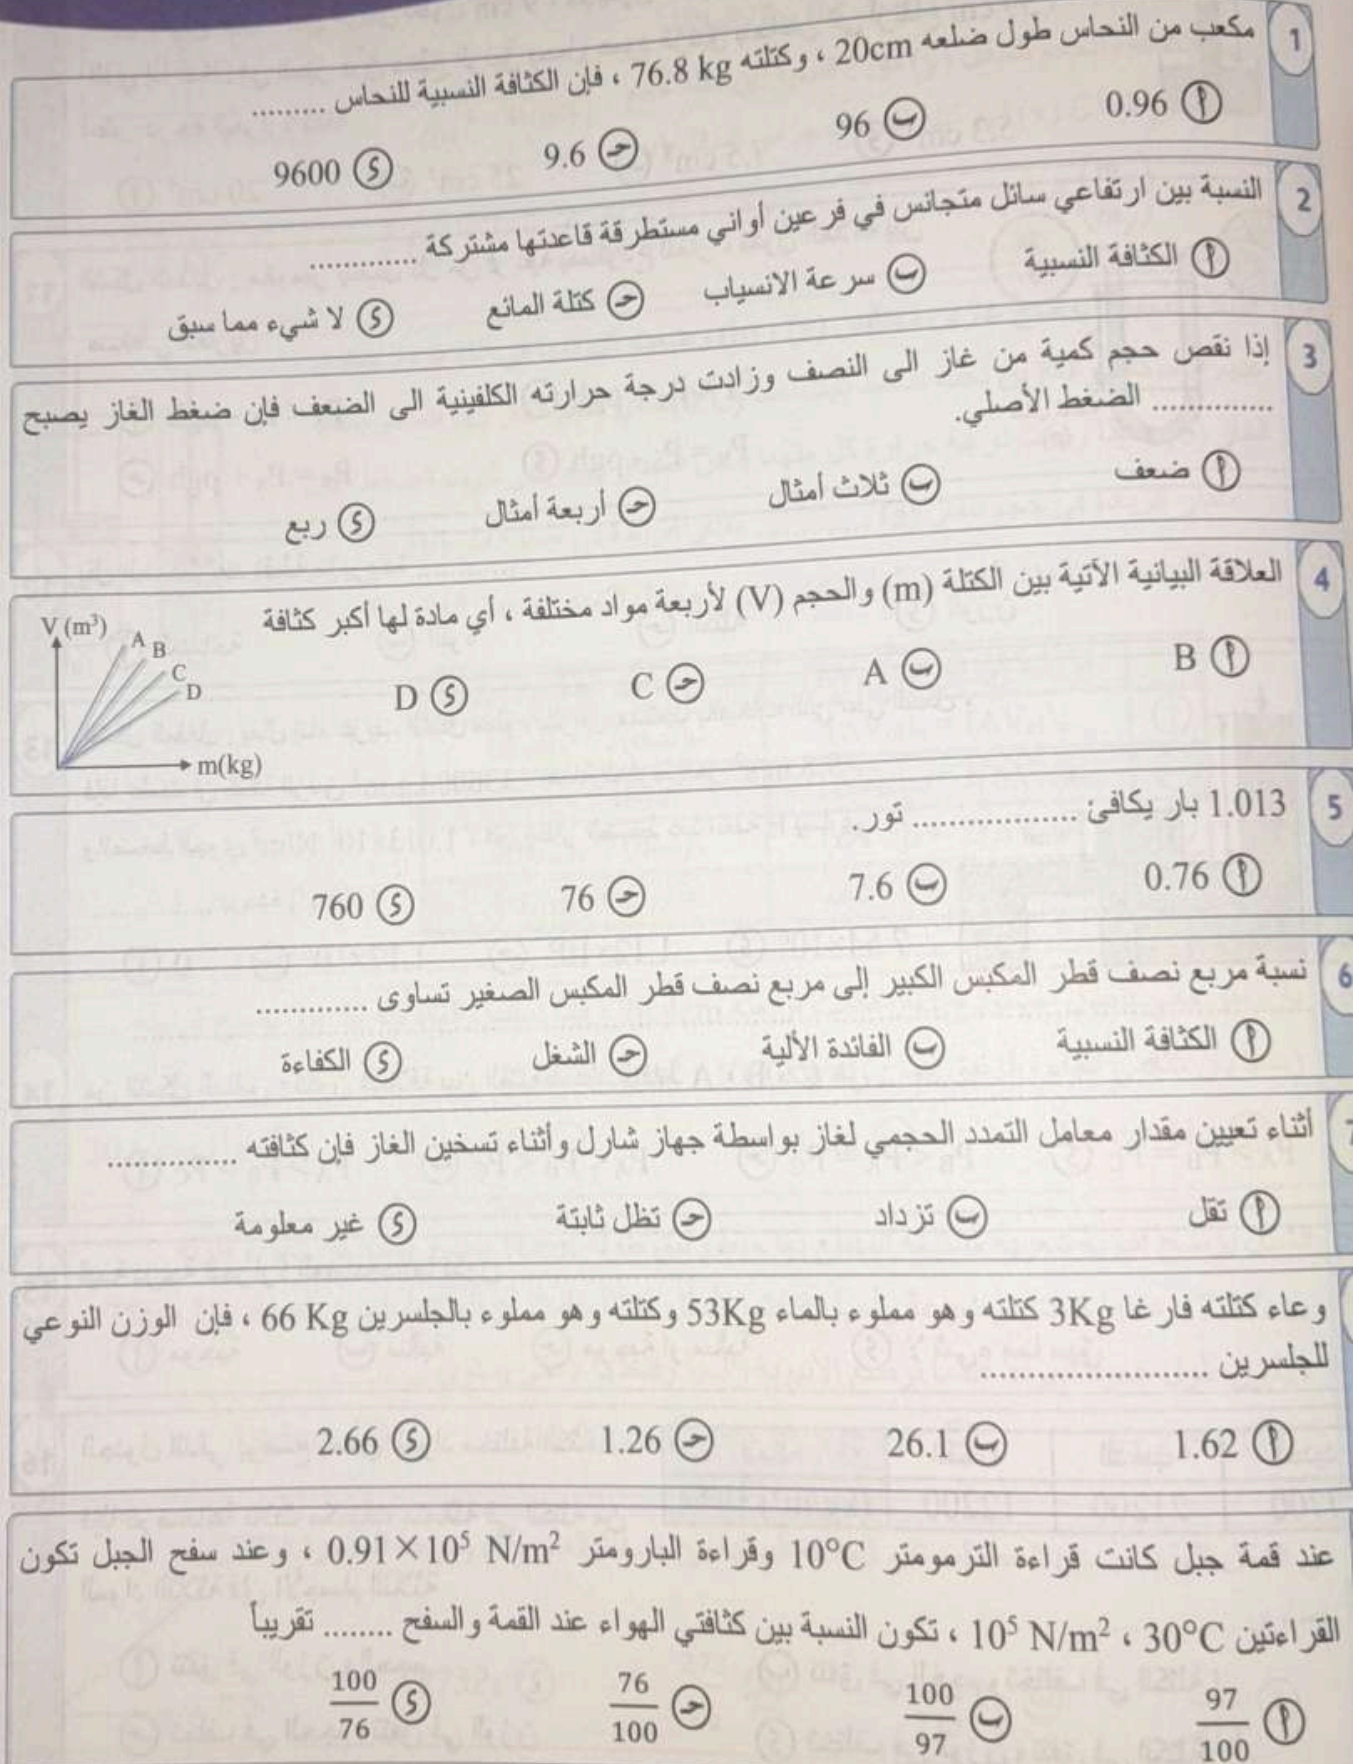 1 مكعب من النحاس طول ضلعه 20cm ، وكتلته 76.8 kg ، فإن الكثافة النسبية للنحاس .........
أ 0.96 ب 96 حـ 9.6 د 9600
2 النسبة بين ارتفاعي سائل متجانس في فرعين أواني مستطرقة قاعدتها مشتركة .............
أ الكثافة النسبية ب سرعة الانسياب حـ كتلة المائع د لا شيء مما سبق
3 إذا نقص حجم كمية من غاز الى النصف وزادت درجة حرارته الكلفينية الى الضعف فإن ضغط الغاز يصبح
.............. الضغط الأصلي.
أ ضعف ب ثلاث أمثال حـ أربعة أمثال د ربع
4 العلاقة البيانية الآتية بين الكتلة (m) والحجم (V) لأربعة مواد مختلفة ، أي مادة لها أكبر كثافة
أ B ب A حـ C د D
V (m³)
A
B
C
D
m(kg)
5 1.013 بار يكافئ .................. تور.
أ 0.76 ب 7.6 حـ 76 د 760
6 نسبة مربع نصف قطر المكبس الكبير إلى مربع نصف قطر المكبس الصغير تساوى .............
أ الكثافة النسبية ب الفائدة الألية حـ الشغل د الكفاءة
7 أثناء تعيين مقدار معامل التمدد الحجمي لغاز بواسطة جهاز شارل وأثناء تسخين الغاز فإن كثافته ................
أ تقل ب تزداد حـ تظل ثابتة د غير معلومة
وعاء كتلته فارغا 3Kg كتلته وهو مملوء بالماء 53Kg وكتلته وهو مملوء بالجلسرين 66 Kg ، فإن الوزن النوعي
للجلسرين .........................
أ 1.62 ب 26.1 حـ 1.26 د 2.66
عند قمة جبل كانت قراءة الترمومتر 10°C وقراءة البارومتر 0.91×10⁵ N/m² ، وعند سفح الجبل تكون
القراءتين 30°C ، 10⁵ N/m² ، تكون النسبة بين كثافتي الهواء عند القمة والسفح ........ تقريباً
أ 97/100 ب 100/97 حـ 76/100 د 100/76